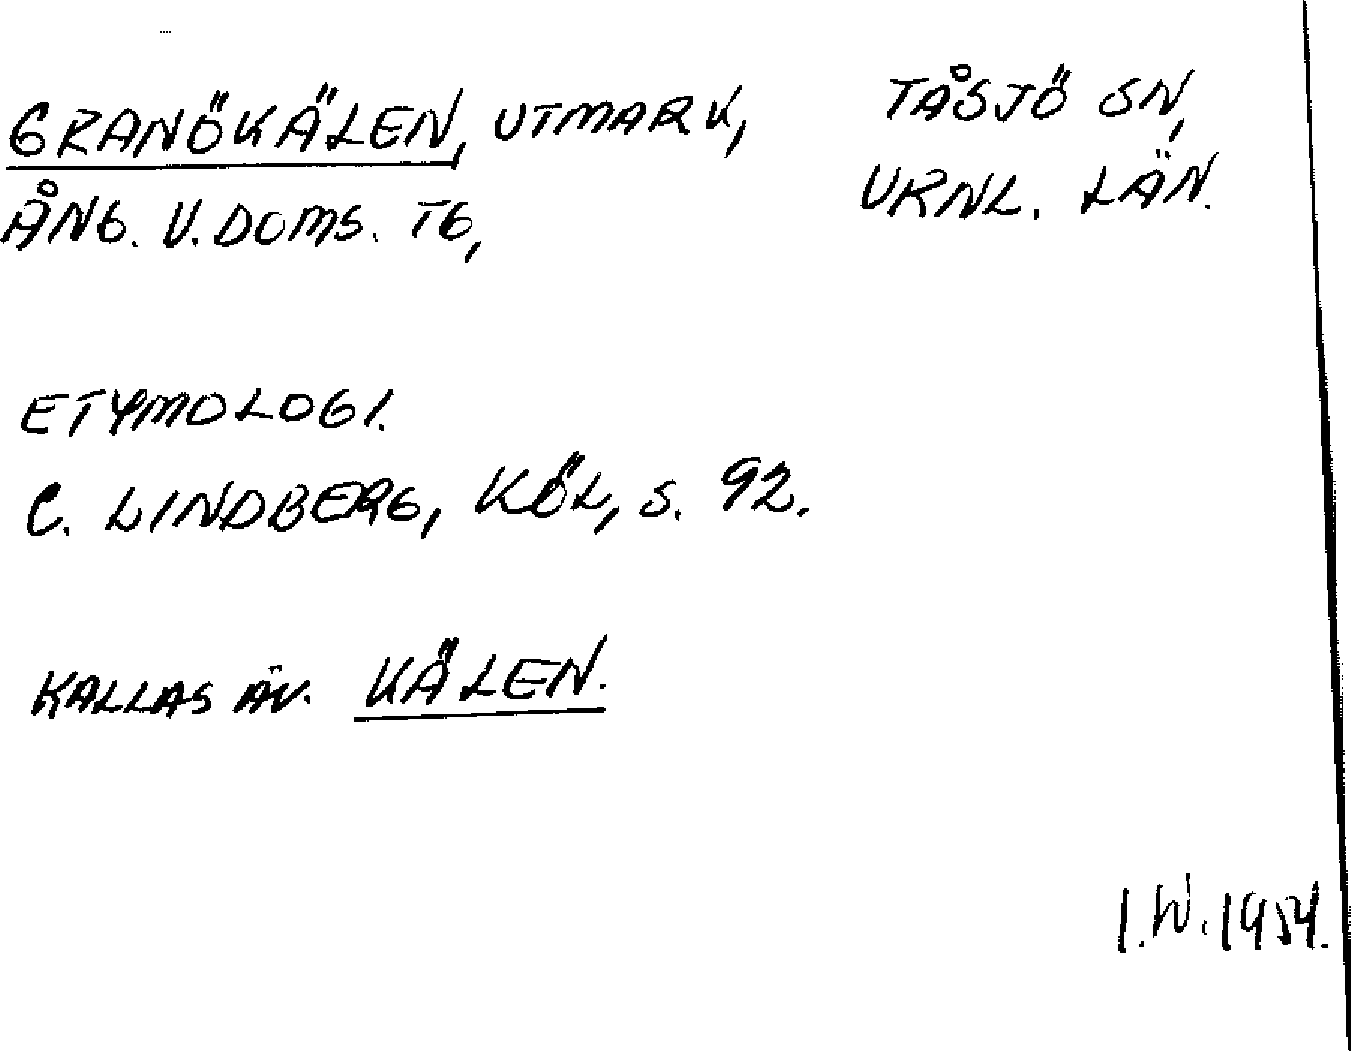 GRANÖKÄLEN, UTMARK,
ÅNG. V. DOMS. TG,
TÅSJÖ SN,
VRNL. LÄN.
ETYMOLOGI.
C. LINDBERG, KÖL, S. 92.
KALLAS ÄV. KÄLEN.
I.W. 1954.